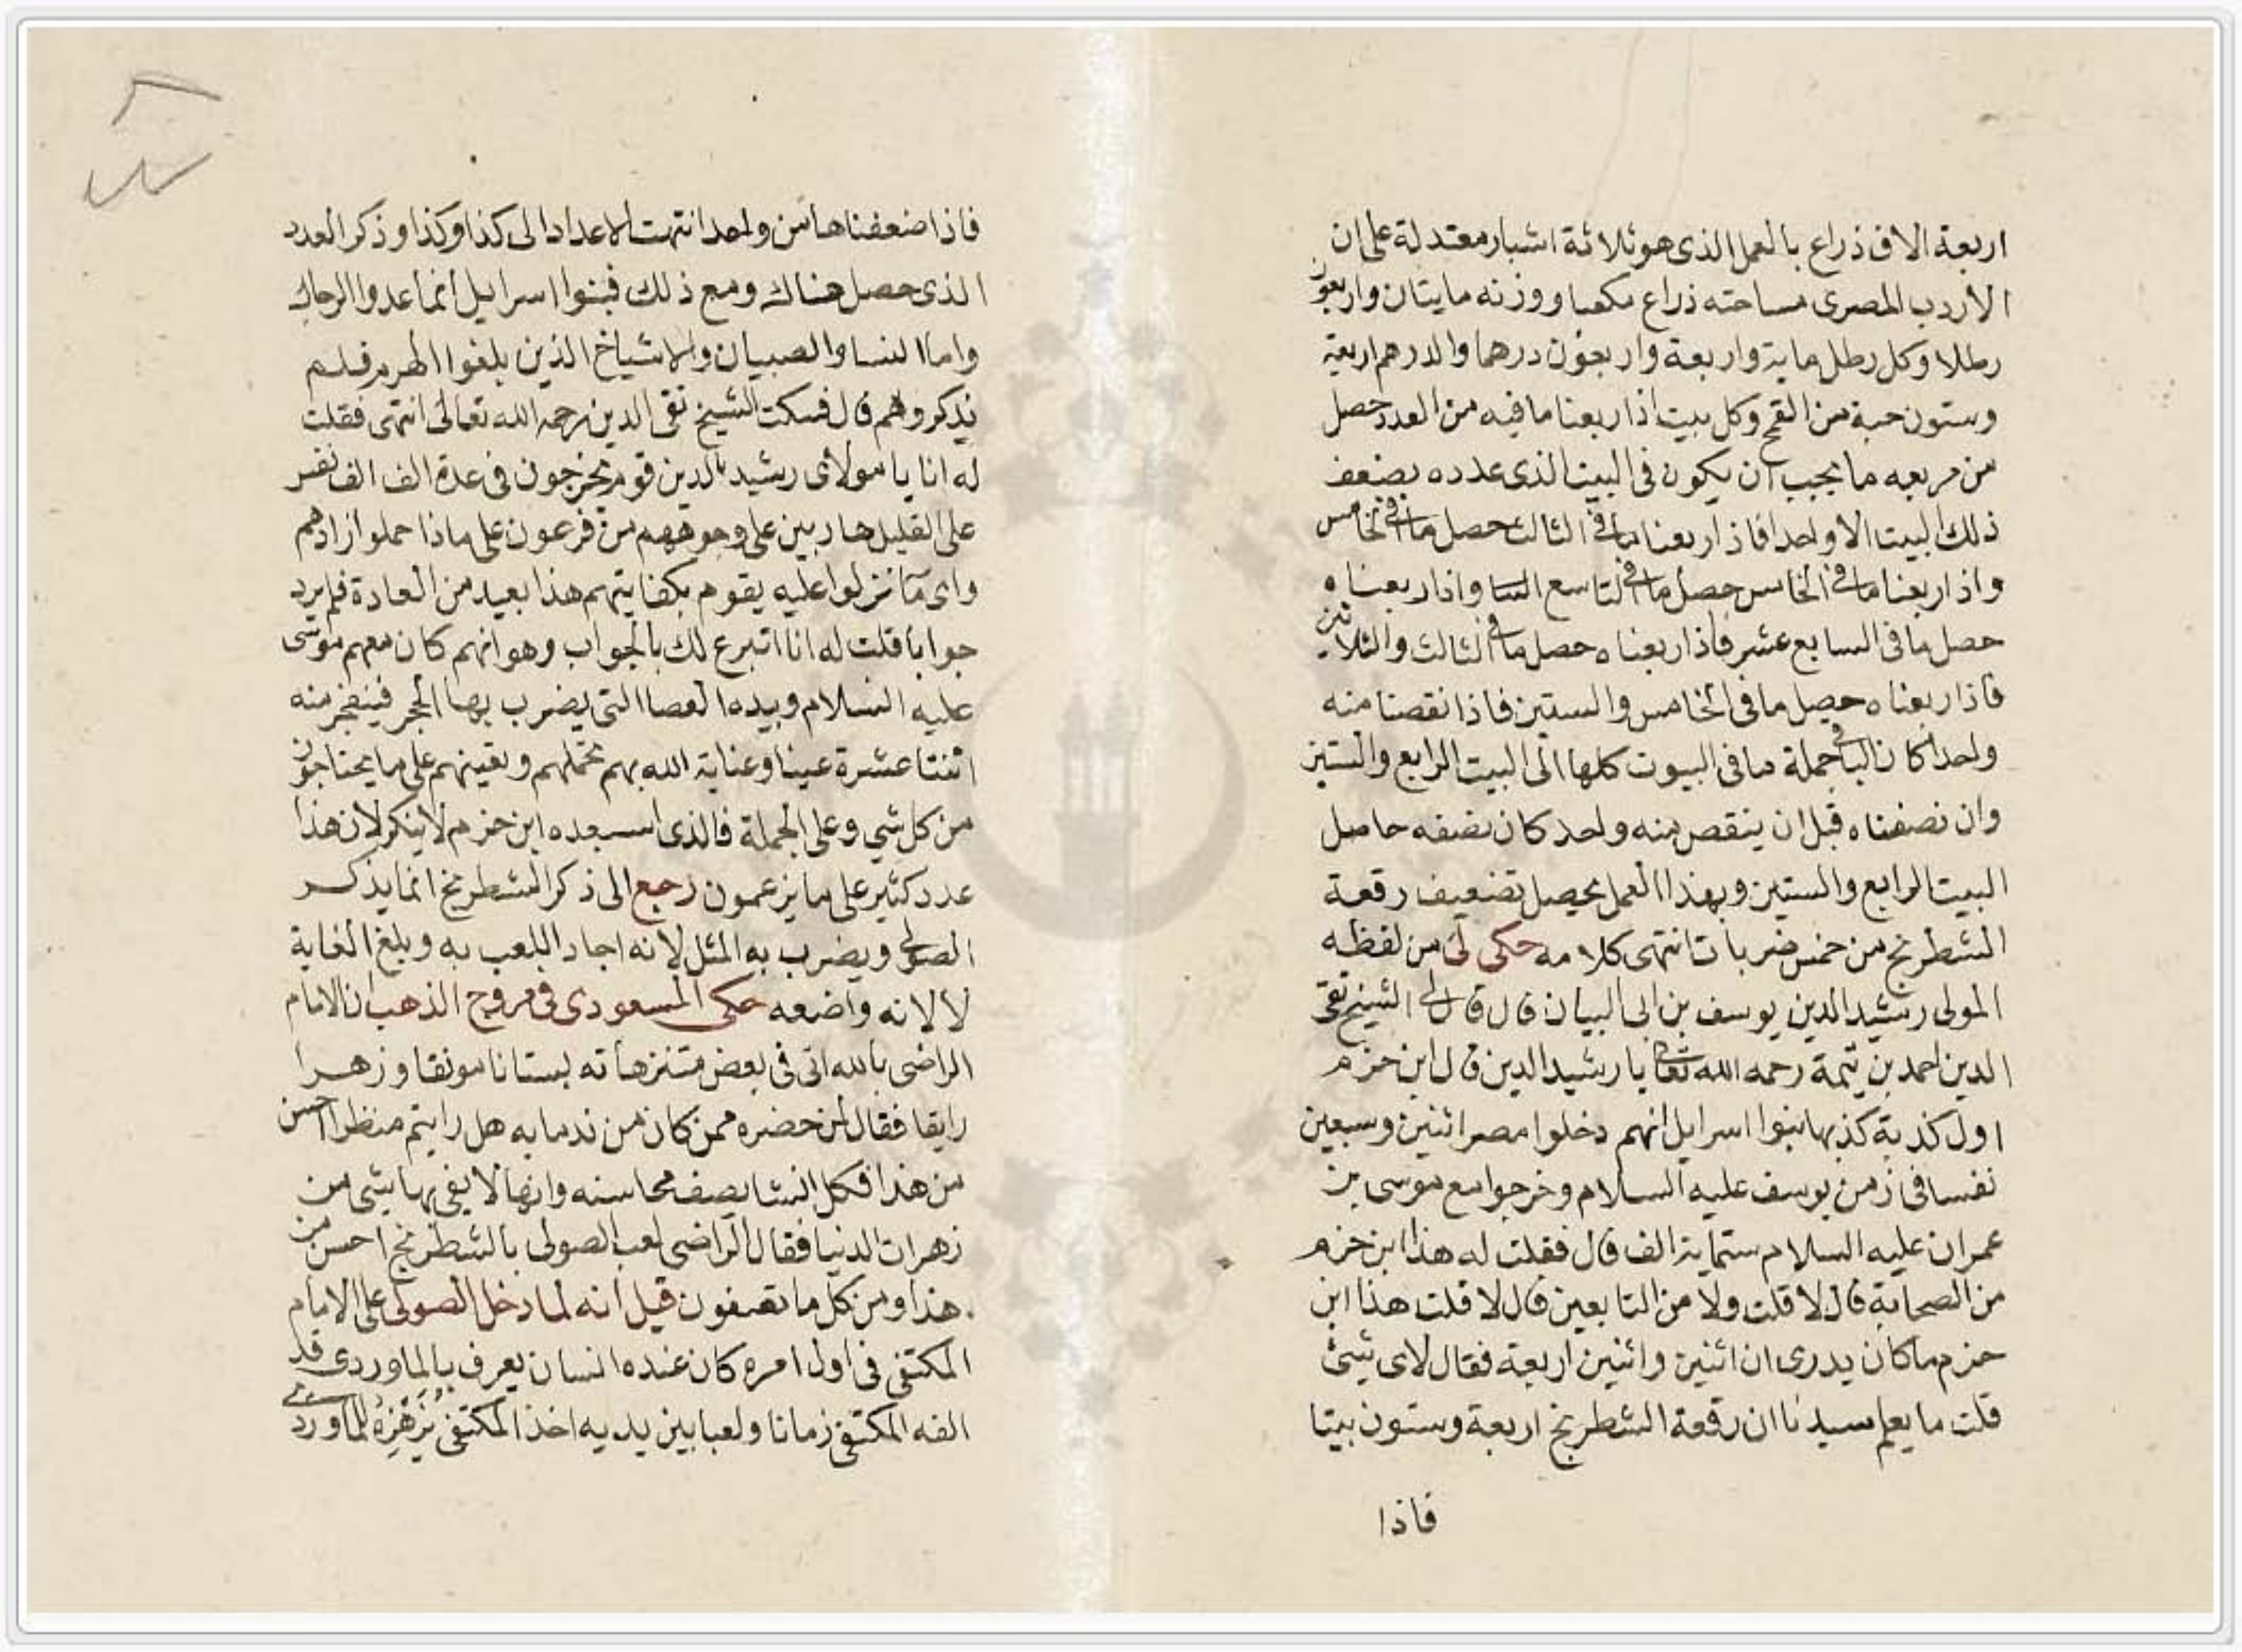 اربعة الاف ذراع بالعمل الذى هو ثلاثة اشبار معتدلة على ان
الأردب المصرى مساحته ذراع مكعبا ووزنه مايتان واربعون
رطلا وكل رطل ماية واربعة واربعون درهما والدرهم اربعة
وستون حبة من القمح وكل بيت اذا ربعنا ما فيه من العدد حصل
من مربعه ما يجب ان يكون فى البيت الذى عدده بضعف
ذلك البيت الا واحدا فاذا ربعنا ما فى الثالث حصل ما فى الخامس
واذا ربعنا ما فى الخامس حصل ما فى التاسع واذا ربعناه
حصل ما فى السابع عشر فاذا ربعناه حصل ما فى الثالث والثلاثين
فاذا ربعناه حصل ما فى الخامس والستين فاذا نقصنا منه
واحدا كان الباقى جملة ما فى البيوت كلها الى البيت الرابع والستين
وان نصفناه قبل ان ينقص منه واحد كان نصفه حاصل
البيت الرابع والستين وبهذا العمل يحصل تضعيف رقعة
الشطرنج من خمس ضربات انتهى كلامه حكى لى من لفظه
المولى رشيد الدين يوسف بن ابى البيان قال قال لى الشيخ تقى
الدين احمد بن تيمة رحمه الله تعالى يا رشيد الدين قال ابن حزم
اول كذبة كذبها بنوا اسرايل انهم دخلوا مصر اثنين وسبعين
نفسا فى زمن يوسف عليه السلام وخرجوا مع موسى بن
عمران عليه السلام ستماية الف قال فقلت له هذا ابن حزم
من الصحابة قال لا قلت ولا من التابعين قال لا قلت هذا ابن
حزم ما كان يدرى ان اثنين واثنين اربعة فقال لاى شئ
قلت ما يعلم سيدنا ان رقعة الشطرنج اربعة وستون بيتا
فاذا
فاذا ضعفناها من واحد انتهت الاعداد الى كذا وكذا وذكر العدد
الذى حصل هناك ومع ذلك فبنوا اسرايل انما عدوا الرجال
واما النسا والصبيان والاشياخ الذين بلغوا الهرم فلم
يذكروهم قال فسكت الشيخ تقى الدين رحمه الله تعالى انتهى فقلت
له انا يا مولاى رشيد الدين قوم يخرجون فى عدة الف الف نفس
على القليل هاربين على وجوههم من فرعون على ماذا حملوا ازادهم
واى ما نزلوا عليه يقوم بكفايتهم هذا بعيد من العادة فلم يرد
جوابا قلت له انا اتبرع لك بالجواب وهو انهم كان معهم موسى
عليه السلام وبيده العصا التى يضرب بها الحجر فينفجر منه
اثنتا عشرة عينا وعناية الله بهم تحملهم وتعينهم على ما يحتاجون
من كل شي وعلى الجملة فالذى استبعده ابن حزم لا ينكر لان هذا
عدد كثير على ما يزعمون رجع الى ذكر الشطرنج انما يذكر
الصولى ويضرب به المثل لانه اجاد اللعب به وبلغ الغاية
لا لانه واضعه حكى المسعودى فى مروج الذهب ان الامام
الراضى بالله اتى فى بعض متنزهاته بستانا مونقا وزهرا
رايقا فقال لمن حضره ممن كان من ندمايه هل رايتم منظرا احسن
من هذا فكل انشا يصف محاسنه وانها لا يفى بها شى من
زهرات الدنيا فقال الراضى لعب الصولى بالشطرنج احسن من
هذا ومن كل ما تصفون قيل انه لما دخل الصولى على الامام
المكتفى فى اول امره كان عنده انسان يعرف بالماوردى قد
الفه المكتفى زمانا ولعبا بين يديه اخذ المكتفى للماوردى